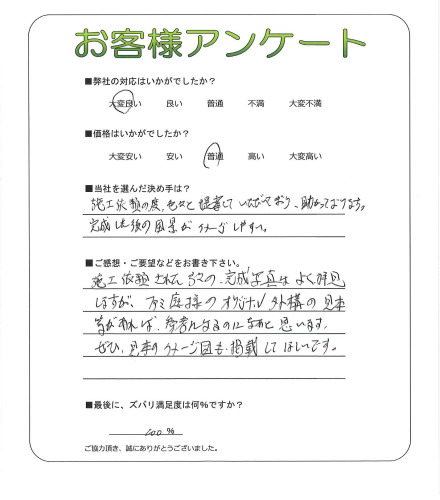 お客様アンケート
■弊社の対応はいかがでしたか？
大変良い 良い 普通 不満 大変不満
■価格はいかがでしたか？
大変安い 安い 普通 高い 大変高い
■当社を選んだ決め手は？
施工依頼の度、色々と提案していただいており、助かっております。
完成した後の風景がイメージしやすい。
■ご感想・ご要望などをお書き下さい。
施工依頼された方々の、完成写真はよく拝見
しますが、庭様のオリジナル外構の見本
等があれば、参考になるのになぁと思います。
ぜひ、見本のイメージ図も掲載してほしいです。
■最後に、ズバリ満足度は何％ですか？
100 %
ご協力頂き、誠にありがとうございました。